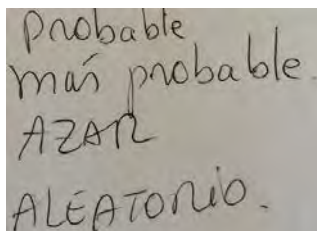 Probable
más probable.
AZAR
ALEATORIO.